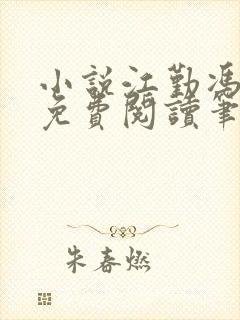 小説江勤馮
免費閱讀筆
朱春燃